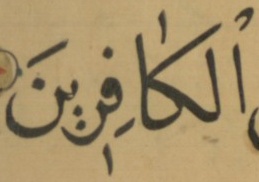 ٱلْكَافِرِينَ